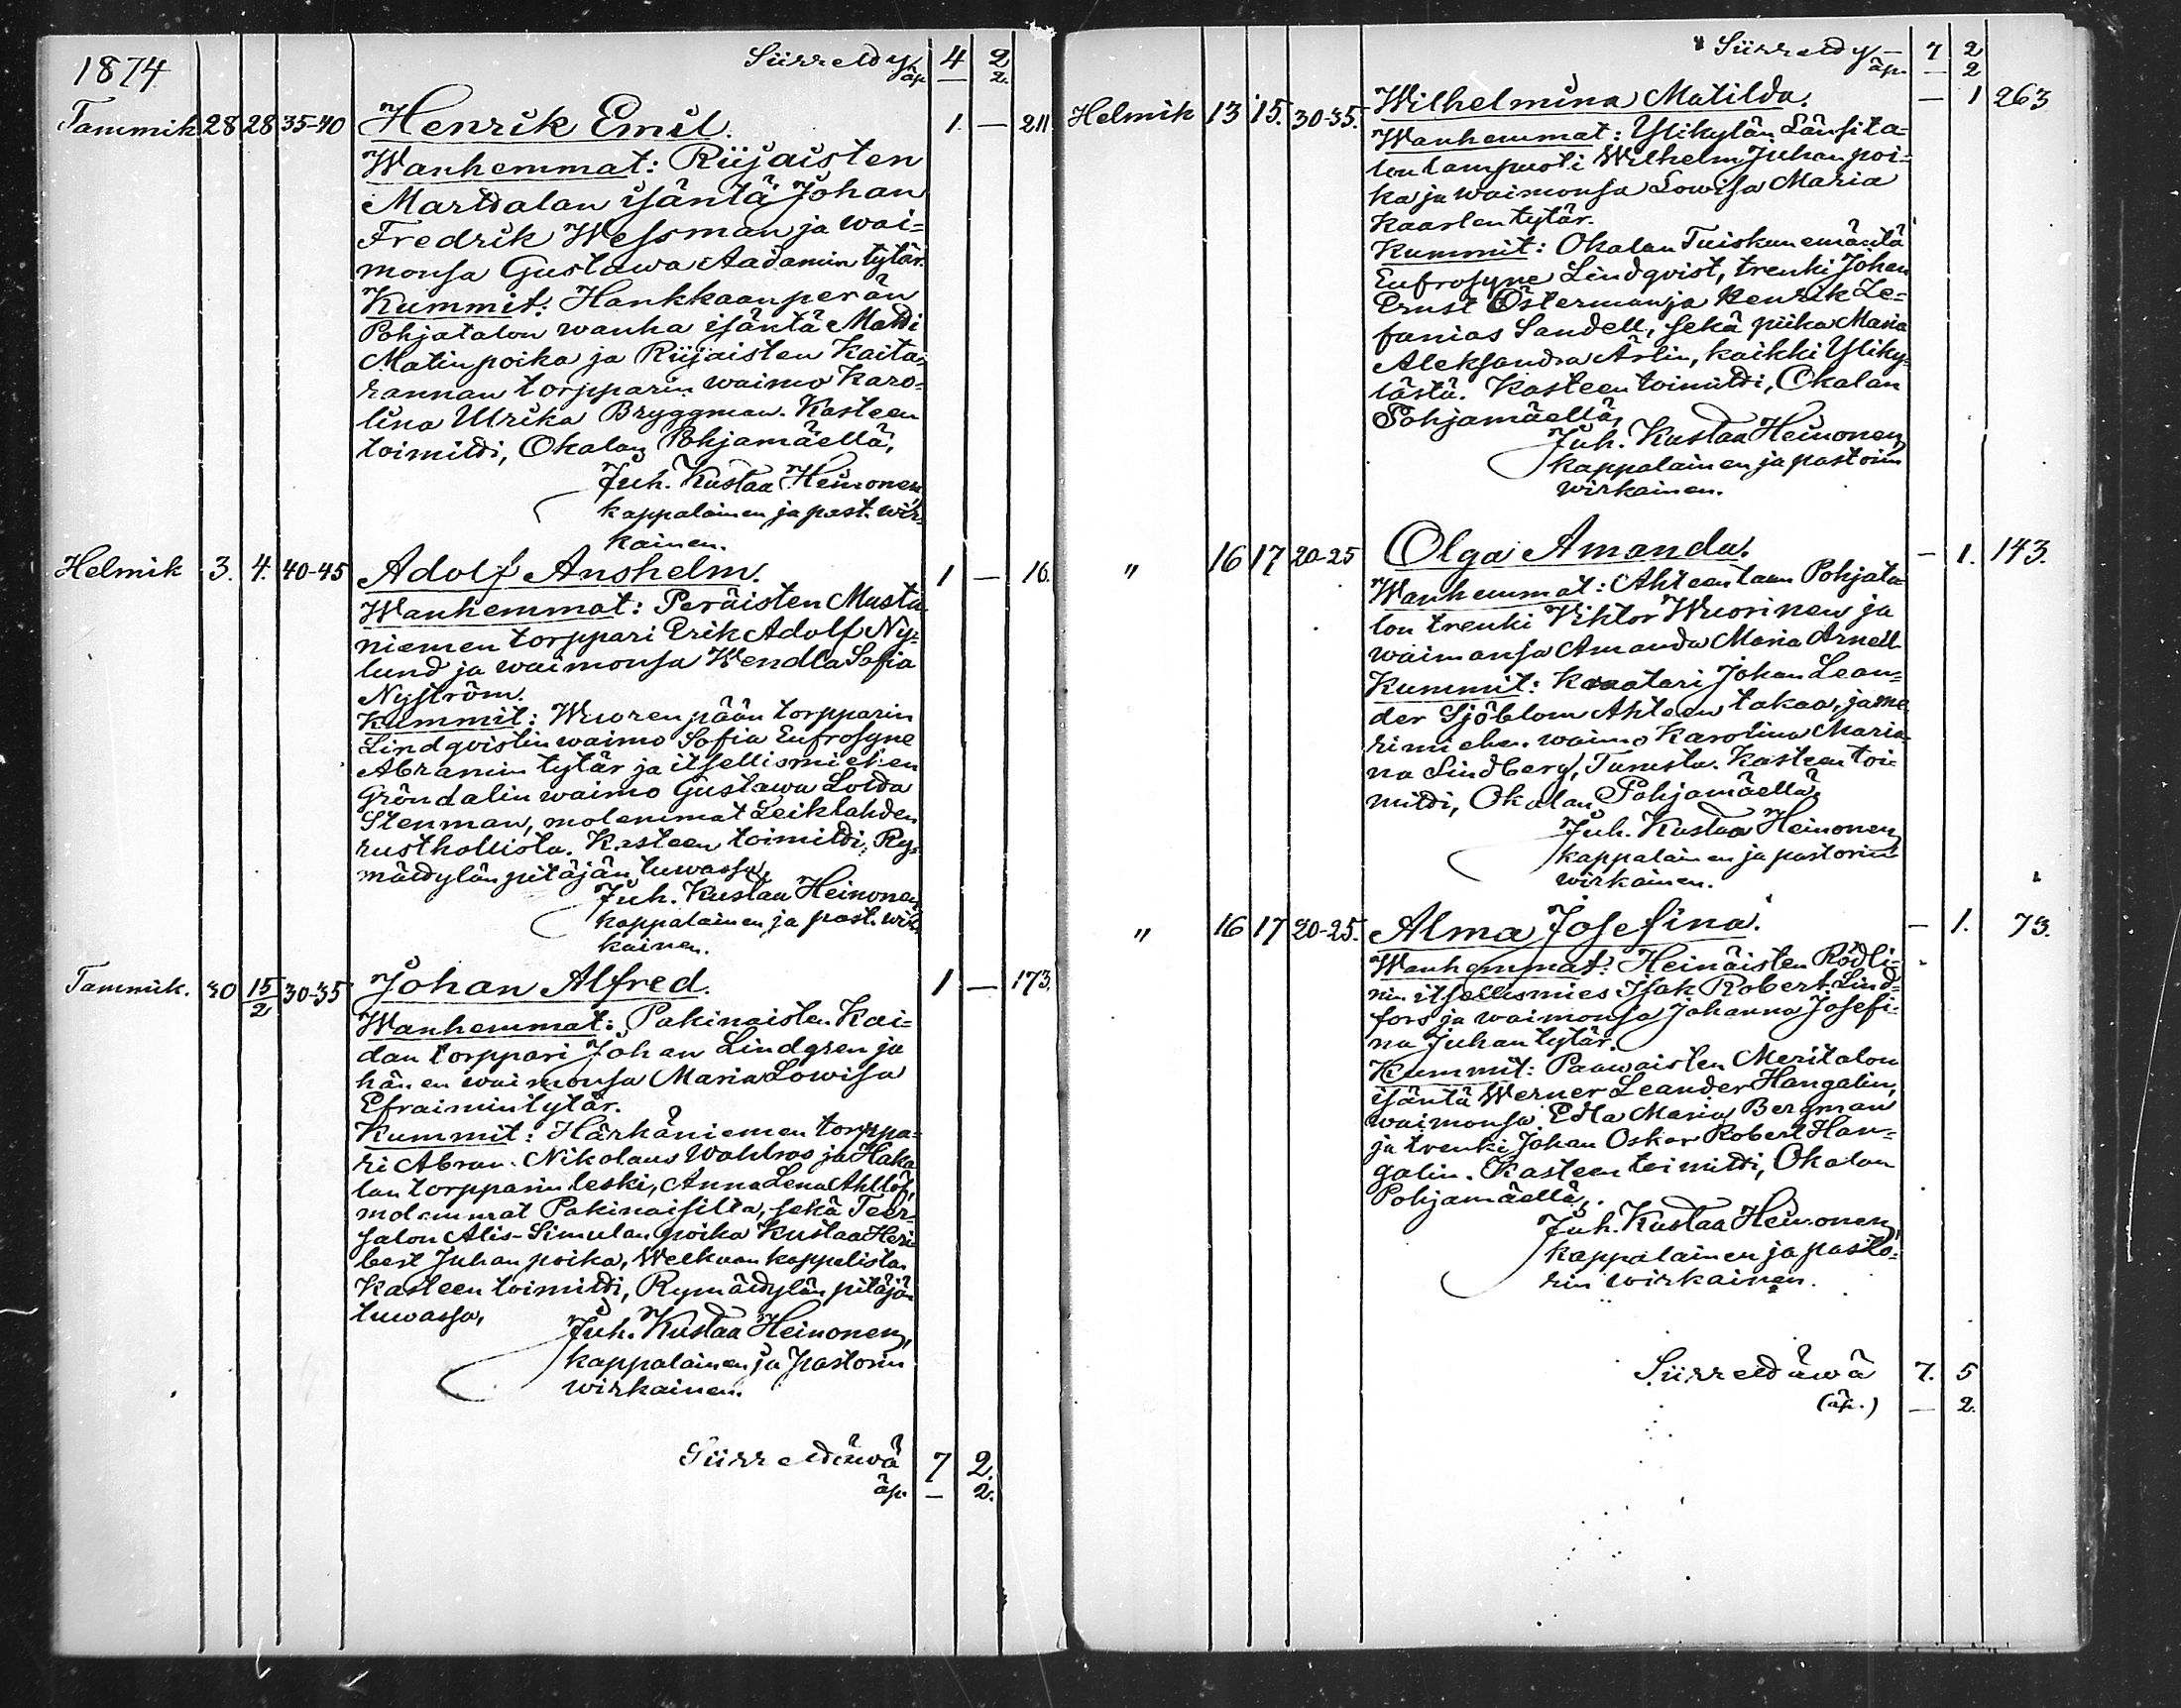 1874
Siirretty 4 2
äp. — 2.
Tammik 28 28 35-40 Henrik Emil. 1. — 211
Wanhemmat: Riijaisten
Marttalan isäntä Johan
Fredrik Wessman ja wai-
monsa Gustawa Aadamin tytär.
Kummit: Hankkaanperän
Pohjatalon wanha isäntä Matti
Matinpoika ja Riijaisten Kaita-
rannan torpparin waimo Karo-
lina Ulrika Bryggman. Kasteen
toimitti, Okalan Pohjamäellä,
Juh. Kustaa Heinonen,
kappalainen ja past. wir-
kainen.
Helmik 3. 4. 40-45 Adolf Anshelm. 1 — 16.
Wanhemmat: Peräisten Musta-
niemen torppari Erik Adolf Ny-
lund ja waimonsa Wendla Sofia
Nyström.
Kummit: Wuorenpään torpparin
Lindqvistin waimo Sofia Eufrosyne
Abramin tytär ja itsellismiehen
Gröndalin waimo Gustawa Lovisa
Stenman, molemmat Leiklahden
rusthollista. Kasteen toimitti, Ry-
mättylän pitäjän tuwassa,
Juh. Kustaa Heinonen,
kappalainen ja past. wir-
kainen.
Tammik. 30 15/2 30-35 Johan Alfred. 1 — 173.
Wanhemmat: Pakinaisten Kai-
dan torppari Johan Lindgren ja
hänen waimonsa Maria Lowisa
Efraimintytär.
Kummit: Härkäniemen torppa-
ri Abram Nikolaus Wahlros ja Haka-
lan torpparin leski, Anna Lena Ahllöf,
molemmat Pakinaisilta, sekä Teer-
salon Alis-Simulan poika Kustaa Heri-
bert Juhanpoika, Welkuan kappelista.
Kasteen toimitti, Rymättylän pitäjän
tuwassa,
Juh. Kustaa Heinonen,
kappalainen ja pastorin
wirkainen.
Siirrettäwä 7 2.
äp. — 2.
Siirretty — 7 2
äp. — 2
Helmik 13 15. 30-35. Wilhelmina Matilda. — 1 263
Wanhemmat: Ylikylän Länsita-
lon lampuoti Wilhelm Juhanpoi-
ka ja waimonsa Lowisa Maria
Kaarlentytär.
Kummit: Okalan Tuiskun emäntä
Eufrosyne Lindqvist, trenki Johan
Ernst Österman ja Henrik Ze-
fanias Sandell, sekä piika Maria
Aleksandra Ärlin, kaikki Yliky-
lästä. Kasteen toimitti, Okalan
Pohjamäellä,
Juh. Kustaa Heinonen,
kappalainen ja pastorin
wirkainen.
" 16 17 20-25 Olga Amanda. — 1. 143.
Wanhemmat: Ahteentaan Pohjata-
lon trenki Viktor Wuorinen ja
waimonsa Amanda Maria Arnell.
Kummit: Kraatari Johan Lean-
der Sjöblom Ahteen takaa, ja me-
rimiehen waimo Karolina Maria-
na Lindberg, Kasteen toi-
mitti, Okalan Pohjamäellä,
Juh. Kustaa Heinonen,
kappalainen ja pastorin
wirkainen.
" 16 17 20-25. Alma Josefina. — 1. 73.
Wanhemmat: Heinäisten Rödli-
nin itsellismies Isak Robert Lind-
fors ja waimonsa Johanna Josefi-
na Juhantytär.
Kummit: Paawaisten Meritalon
isäntä Werner Leander Hangelin,
waimonsa Edla Maria Bergman
ja trenki Johan Oskar Robert Han-
gelin. Kasteen toimitti, Okalan
Pohjamäellä,
Juh. Kustaa Heinonen,
kappalainen ja pasto-
rin wirkainen.
Siirrettäwä 7. 5
(äp.) — 2.